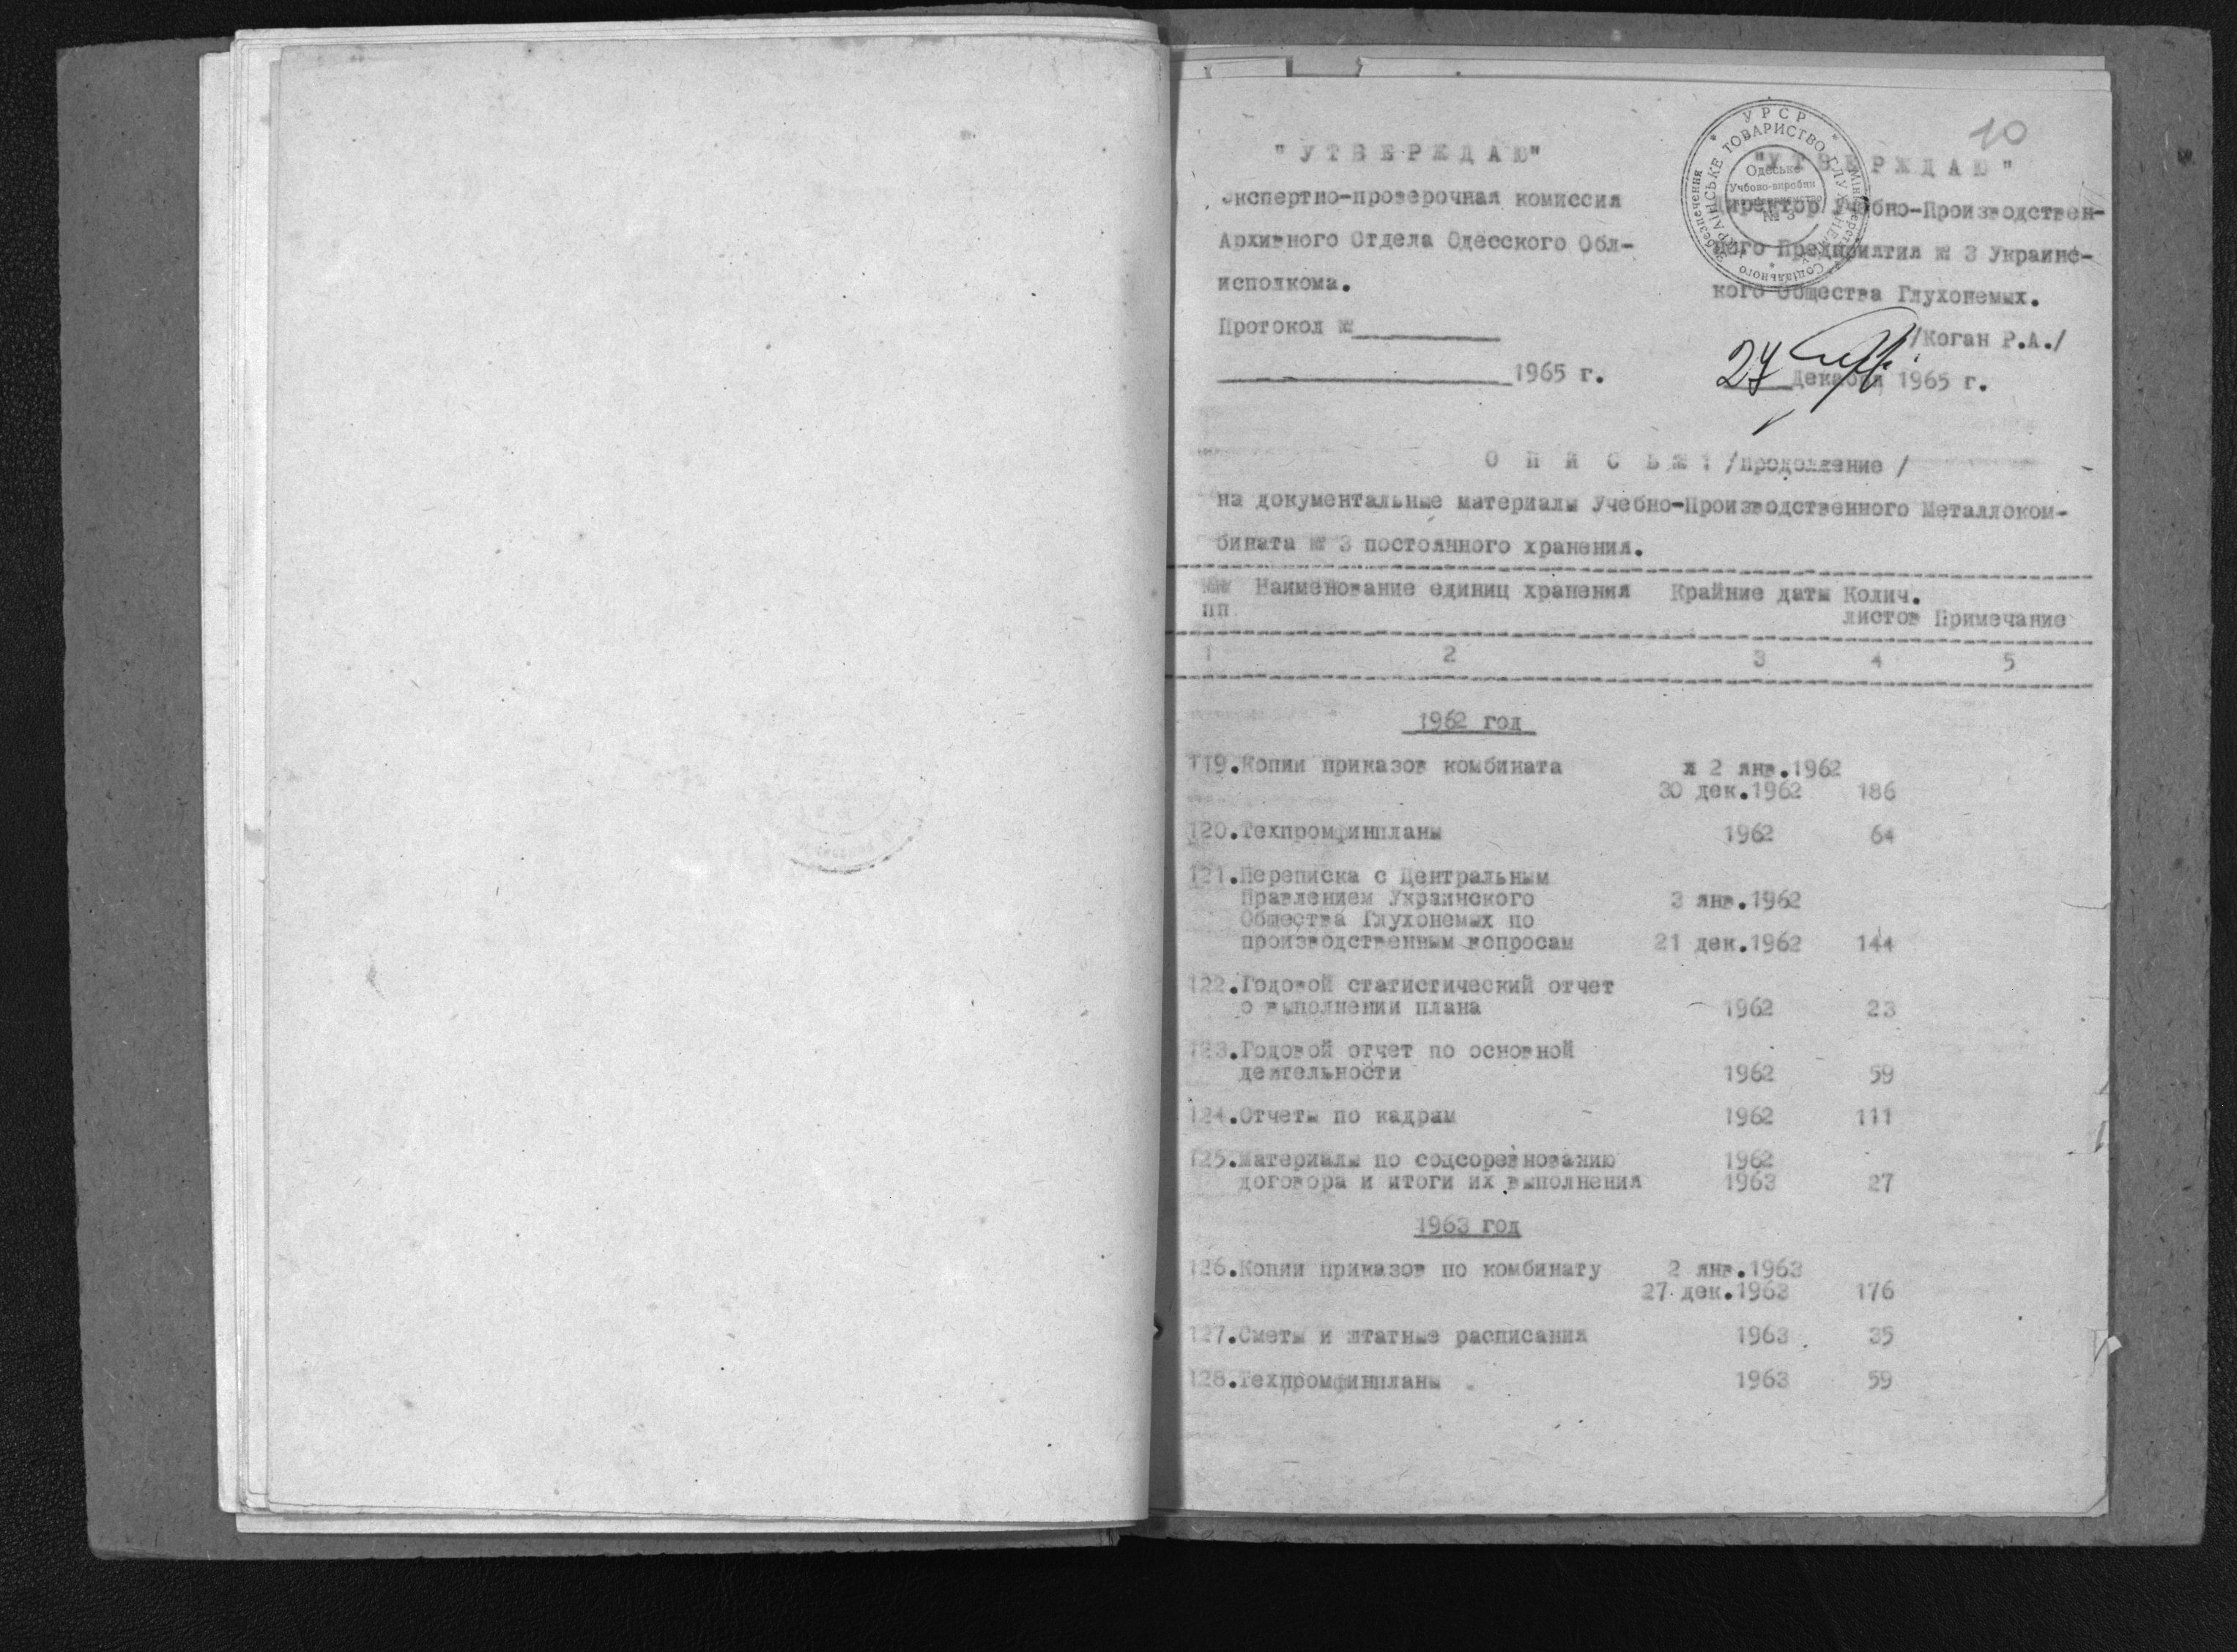 10
"УТВЕРЖДАЮ"
Экспертно-проверочная комиссия
Архивного Отдела Одесского Обл-
исполкома.
Протокол №
1965 г.
УРСР
УКРАЇНСЬКЕ ТОВАРИСТВО ГЛУХОНІМИХ
Міністерство Соціального Забезпечення
Одеське
Учбово-виробни
№ 3
"УТВЕРЖДАЮ"
Директор Учебно-Производствен-
ного Предприятия № 3 Украинс-
кого Общества Глухонемых.
/Коган Р.А./
27 Декабря 1965 г.
О П И С Ь № 1 /продолжение /
на документальные материалы Учебно-Производственного Металлоком-
бината № 3 постоянного хранения.
№№ Наименование единиц хранения Крайние даты Колич.
пп листов Примечание
1 2 3 4 5
1962 год
119.Копии приказов комбината 2 янв.1962
30 дек.1962 186
120.Техпромфинпланы 1962 64
121.Переписка с Центральным
Правлением Украинского 3 янв.1962
Общества Глухонемых по
производственным вопросам 21 дек.1962 144
122.Годовой статистический отчет
о выполнении плана 1962 23
123.Годовой отчет по основной
деятельности 1962 59
124.Отчеты по кадрам 1962 111
125.Материалы по соцсоревнованию 1962
договора и итоги их выполнения 1963 27
1963 год
126.Копии приказов по комбинату 2 янв.1963
27 дек.1963 176
127.Сметы и штатные расписания 1963 35
128.Техпромфинпланы 1963 59